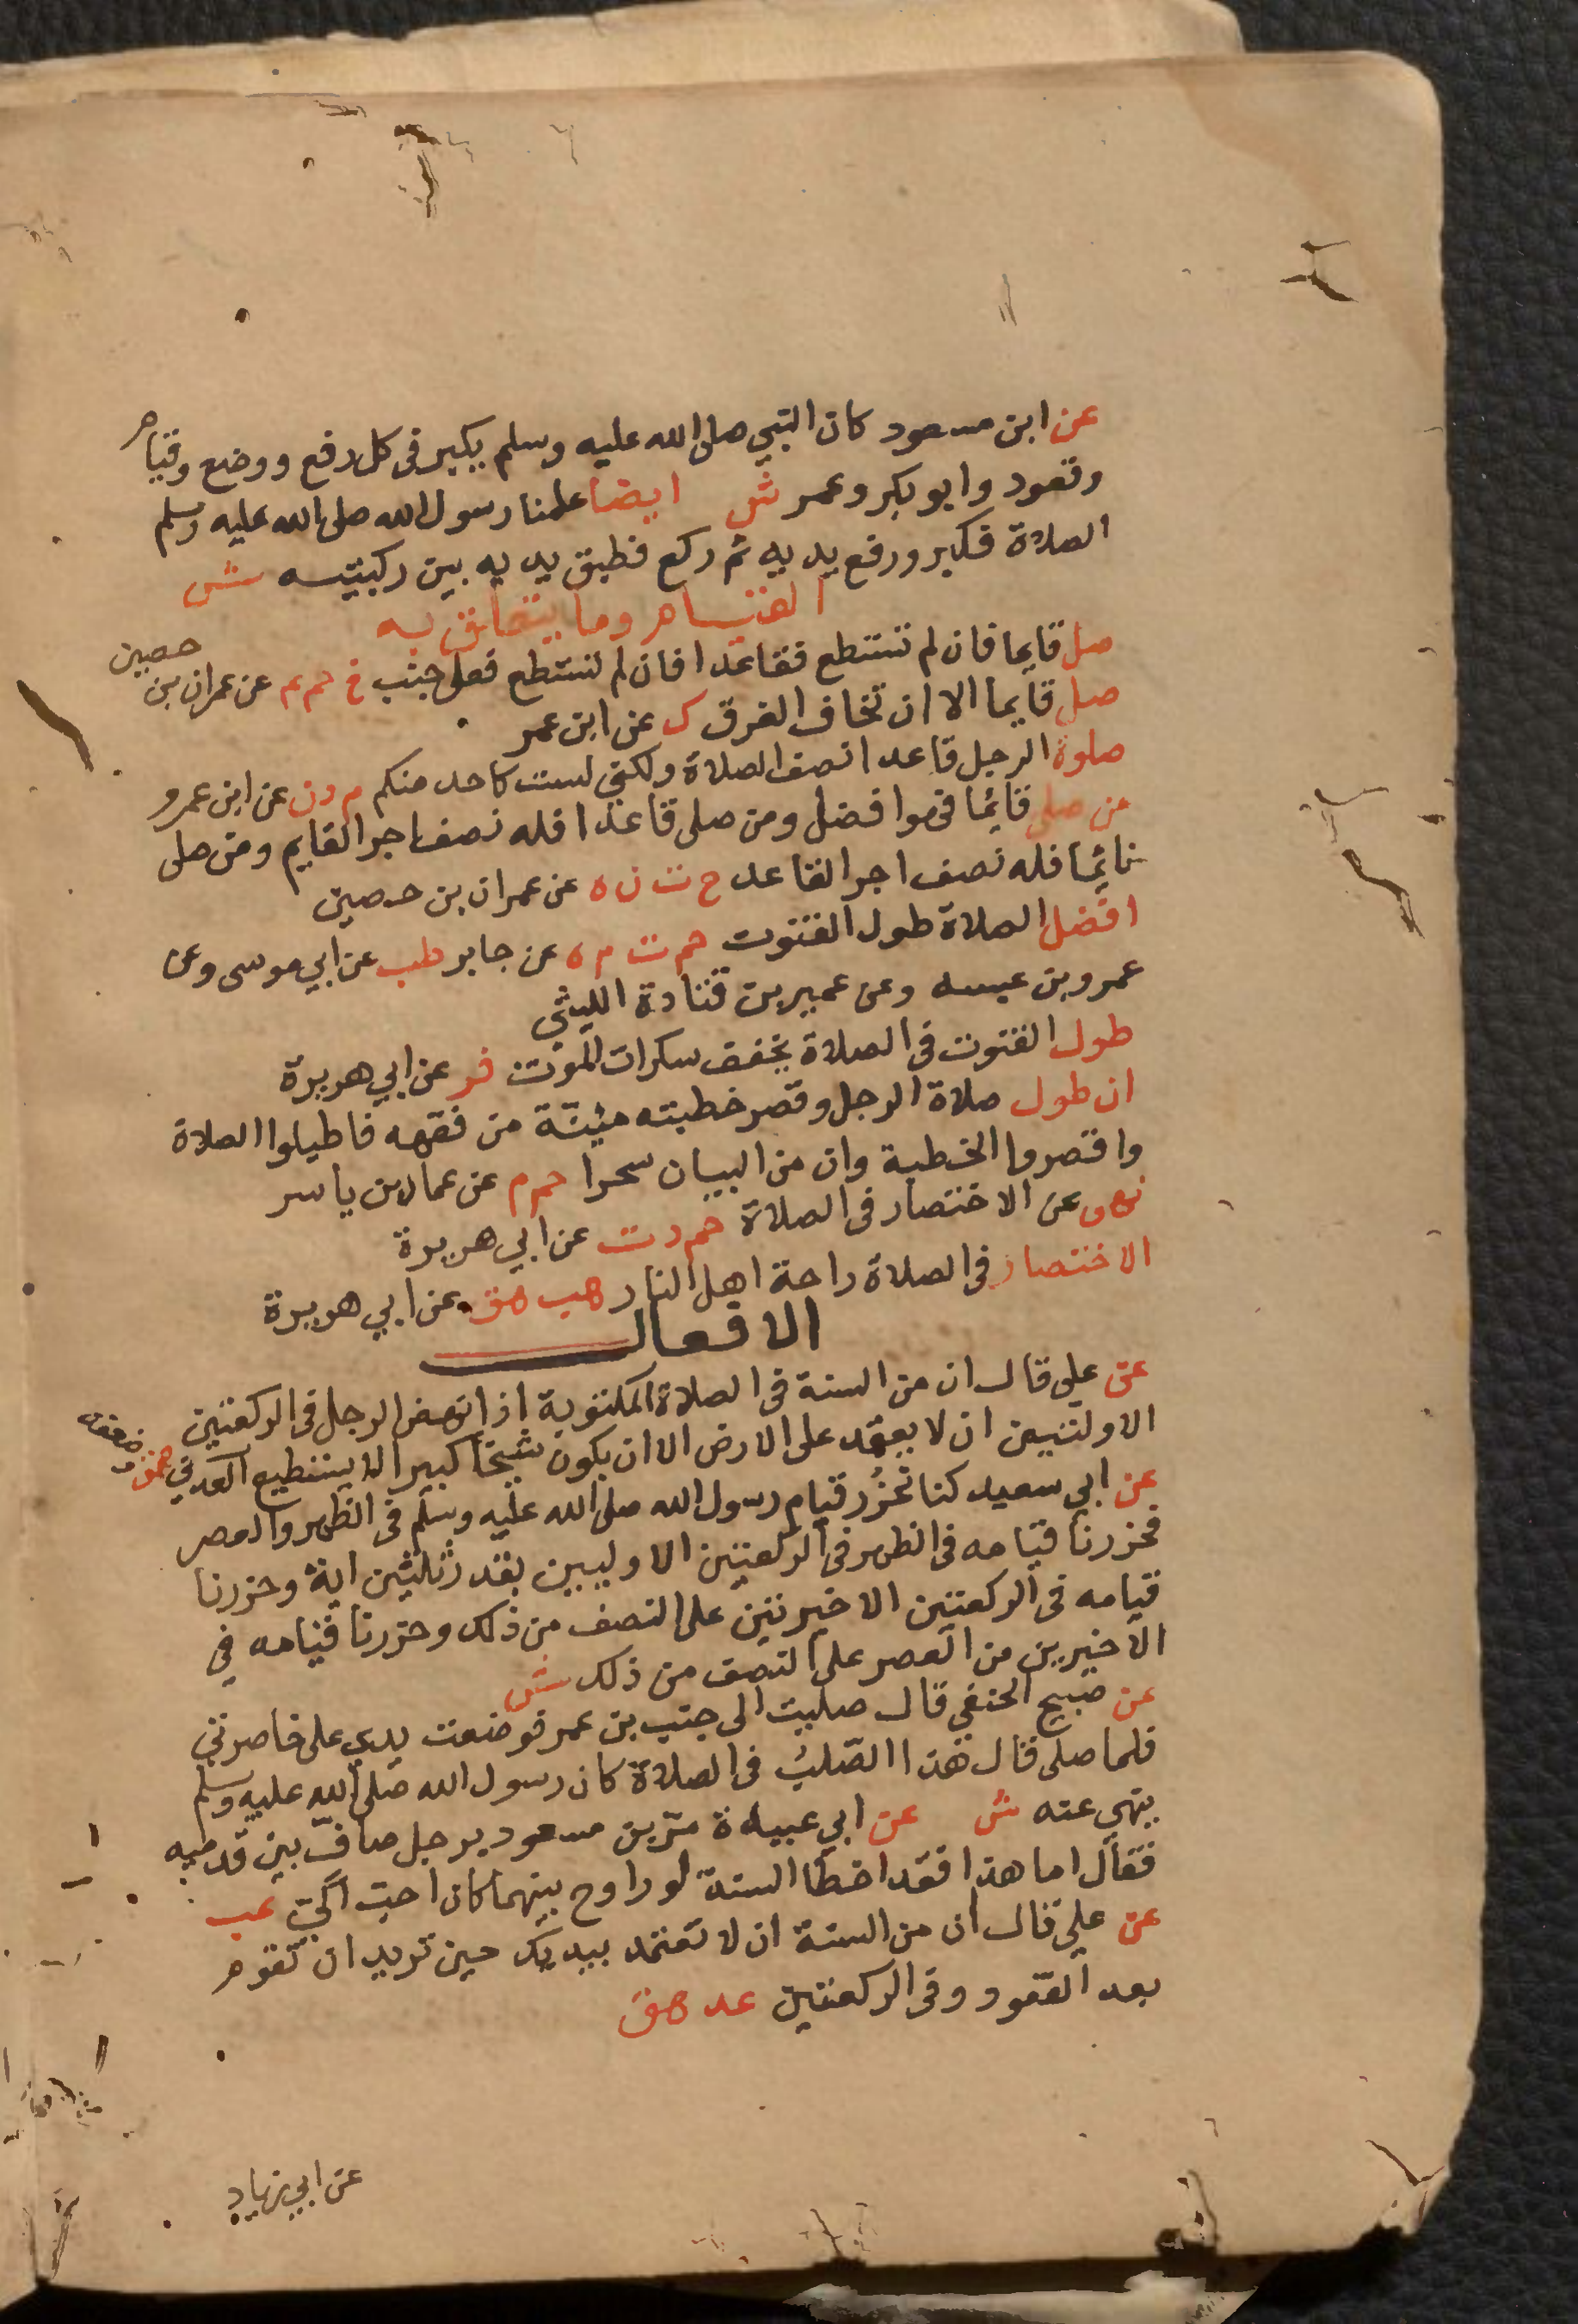 عن ابن مسعود كان النبي صلى الله عليه وسلم يكبر في كل رفع ووضع وقيام
وقعود وابو بكر وعمر ش ايضا علمنا رسول الله صلى الله عليه وسلم
الصلاة فكبر ورفع يديه ثم ركع فطبق يديه بين ركبتيه ش
القيام وما يتعلق به
صل قايما فان لم تستطع فقاعدا فان لم تستطع فعلى جنب خ حم عم عن عمران بن حصين
صل قايما الا ان تخاف الغرق ك عن ابن عمر
صلوة الرجل قاعدا نصف الصلاة ولكني لست كاحد منكم م د ن عن ابن عمرو
من صلى قائما فهو افضل ومن صلى قاعدا فله نصف اجر القايم ومن صلى
نائما فله نصف اجر القاعد خ ت ن ه عن عمران بن حصين
افضل الصلاة طول القنوت حم ت م ه عن جابر طب عن ابي موسى وعن
عمرو بن عبسه وعن عمير بن قتادة الليثي
طول القنوت في الصلاة يخفف سكرات الموت فر عن ابي هريرة
ان طول صلاة الرجل وقصر خطبته مئنّة من فقهه فاطيلوا الصلاة
واقصروا الخطبة وان من البيان سحرا حم م عن عمار بن ياسر
نهى عن الاختصار في الصلاة حم د ت عن ابي هريرة
الاختصار في الصلاة راحة اهل النار هب هق عن ابي هريرة
الافعال
عن علي قال ان من السنة في الصلاة المكتوبة اذا نهض الرجل في الركعتين
الاولتيين ان لا يعتمد على الارض الا ان يكون شيخا كبيرا لا يستطيع العدني هق وضعفه
عن ابي سعيد كنا نحزُر قيام رسول الله صلى الله عليه وسلم في الظهر والعصر
فحزرنا قيامه في الظهر في الركعتين الاوليين بقدر ثلثين اية وحزرنا
قيامه في الركعتين الاخيرتين على النصف من ذلك وحزرنا قيامه في
الاخيرين من العصر على النصف من ذلك ش
عن صبيح الحنفي قال صليت الى جنب بن عمر فوضعت يدي على خاصرتي
فلما صلى قال هذا الصّلب في الصلاة كان رسول الله صلى الله عليه وسلم
ينهى عنه ش عن ابي عبيدة مرّ بن مسعود برجل صافّ بين قدميه
فقال اما هذا فقد اخطا السنة لو راوح بينهما كان احبّ اليّ عب
عن علي قال ان من السنة ان لا تعتمد بيديك حين تريد ان تقوم
بعد القعود وفي الركعتين عد هق
عن ابي زياد